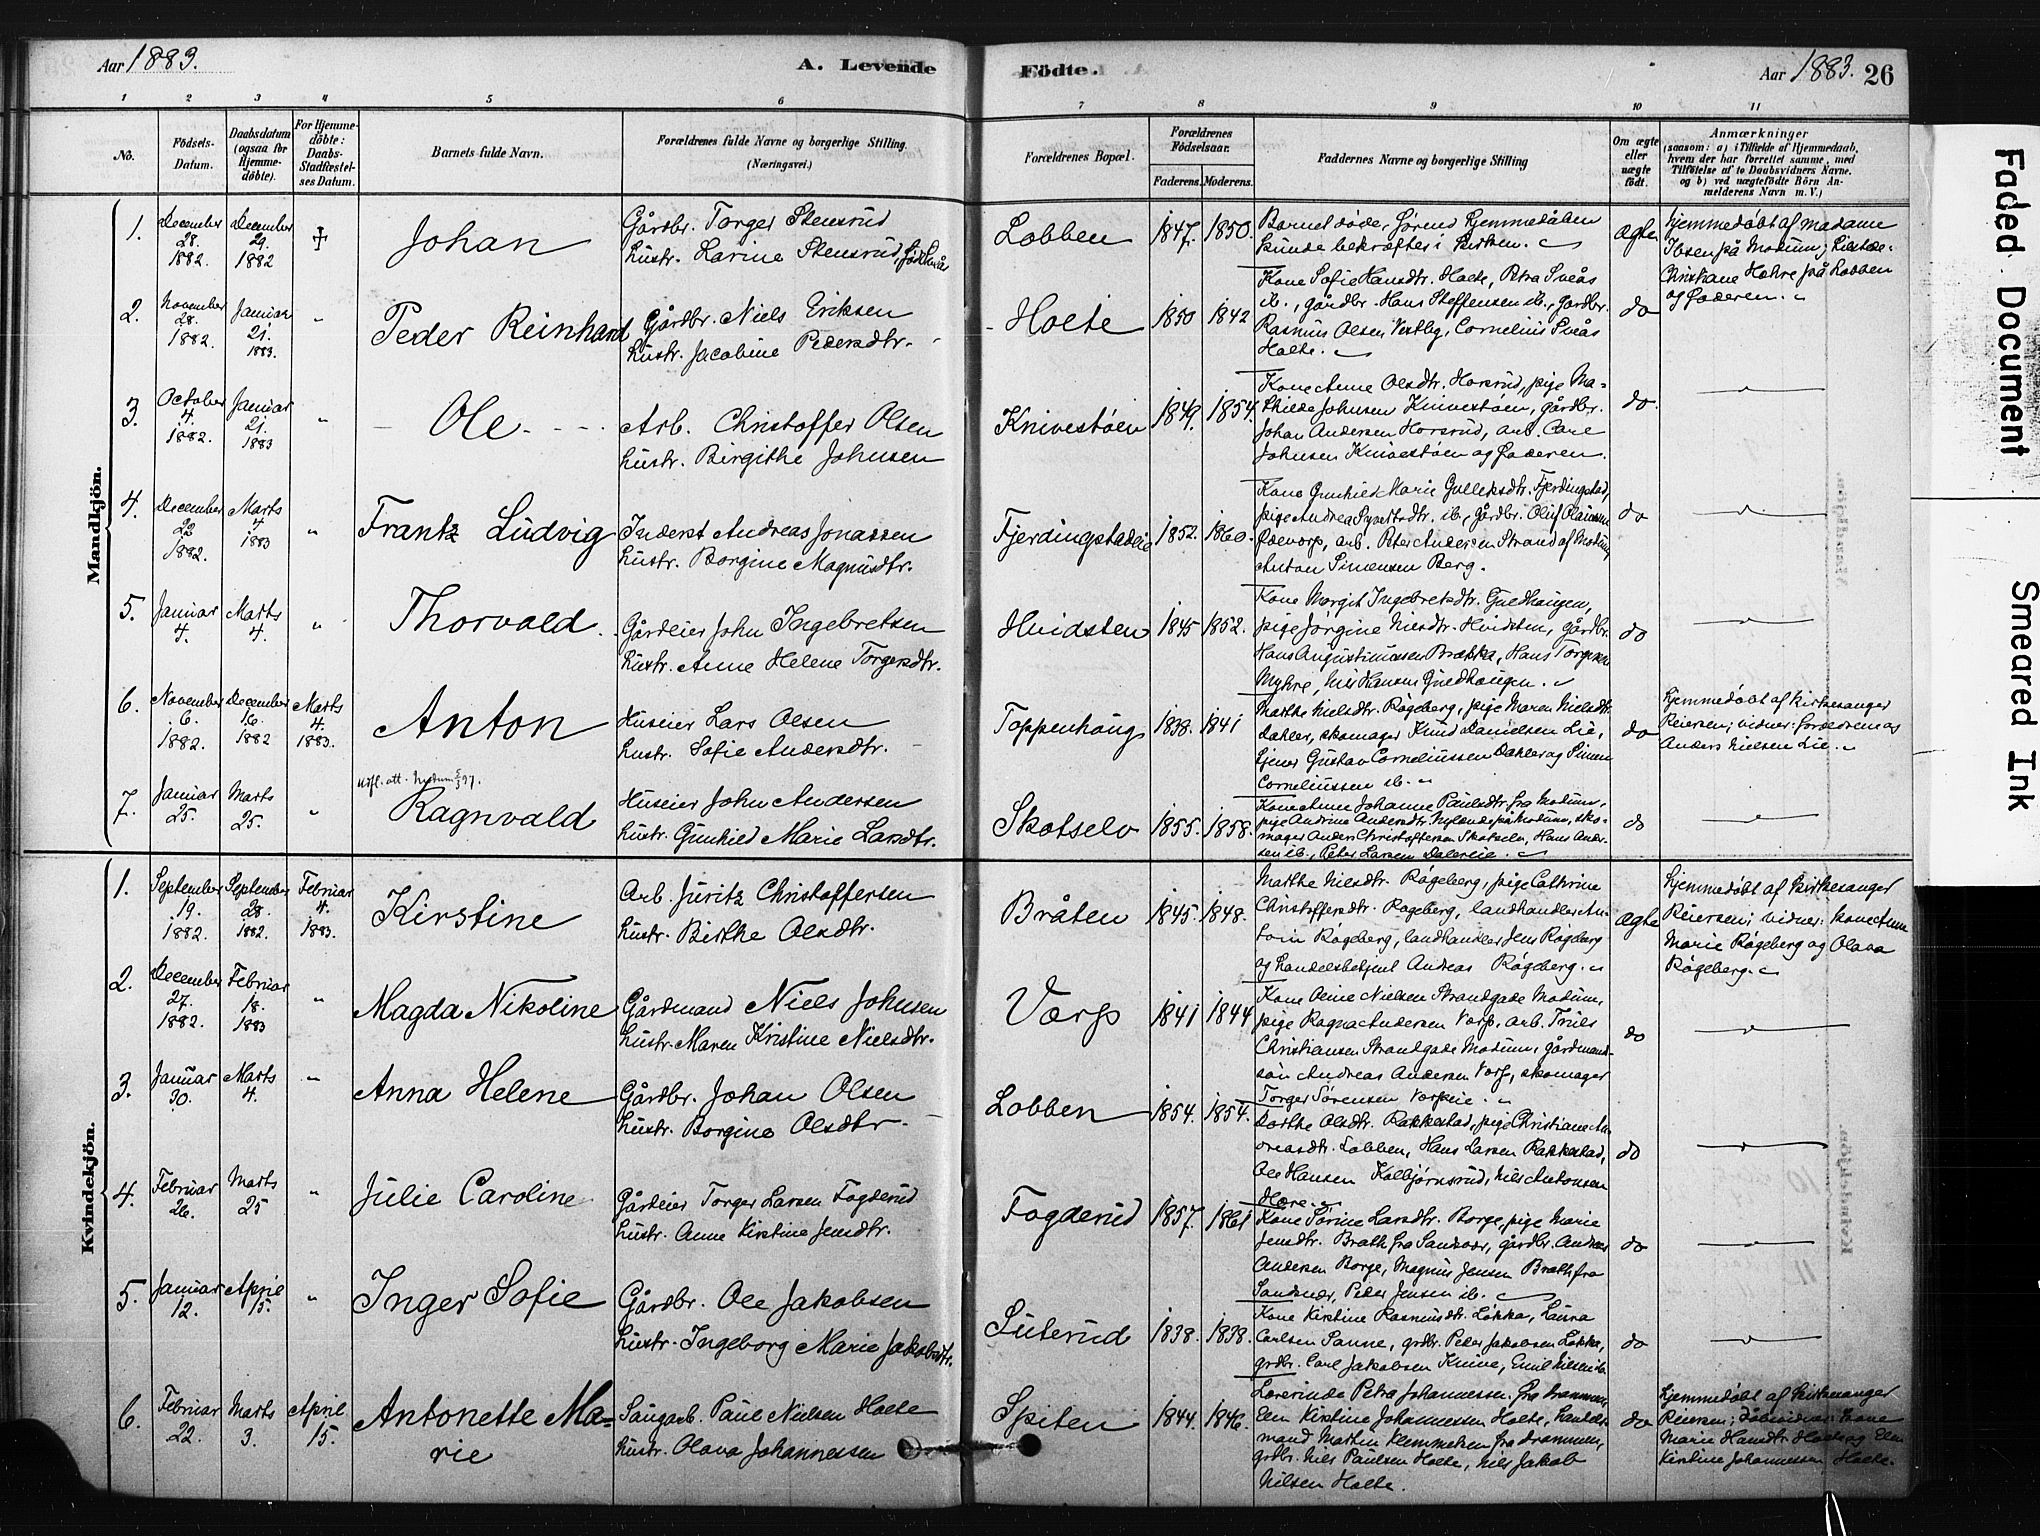 Aar 1883.
A. Levende
Födte.
Aar 1883. 26
1 2 3 4 5 6 7 8 9 10 11
No.
Födsels-Datum.
Daabsdatum (ogsaa for Hjemmedöbte).
For Hjemmedöbte: Daabs-Stadfæstelses Datum.
Barnets fulde Navn.
Forældrenes fulde Navne og borgerlige Stilling. (Næringsvei.)
Forældrenes Bopæl.
Forældrenes Födselsaar.
Faderens. Moderens.
Faddernes Navne og borgerlige Stilling
Om ægte eller uægte födt.
Anmærkninger
(saasom: a) i Tilfælde af Hjemmedaab, hvem der har forrettet samme, med Tilföielse af to Daabsvidners Navne. og b) ved uægtefödte Börn Anmelderens Navn m. V.)
Mandkjön.
1. December 28. 1882. December 29. 1882 Johan
Gårdbr. Torger Stensrud
Hustr. Larine Stensrud,
Lobben 1847. 1850.
Barnet døde, førend Hjemmedåben
kunde bekræftes i Kirken.
ægte
Hjemmedøbt af Madame
Ibsen på Modum;
Christiane Hohre på Lobben
og Faderen.
2. November 28. 1882. Januar 21. 1883. " Peder Reinhard
Gårdbr. Niels Eriksen
Hustr. Jacobine Pedersdtr.
Holte 1850 1842
Kone Sofie Hansdtr. Holte, Petra Sveås
ib., gårdbr. Hans Steffensen ib., gårdbr.
Rasmus Olsen Vestby, Cornelius Sveås
Holte.
do
3. October 4. 1882. Januar 21. 1883 " Ole
Arb. Christoffer Olsen
Hustr. Birgithe Johnsen
Knivestøen 1849. 1854.
Kone Anne Olsdtr. Horsrud, pige Ma-
thilde Johnsen Knivestøen, gårdbr.
Johan Andersen Horsrud, arb. Carl
Johnsen Knivestøen og Faderen.
do.
4. December 22 1882. Marts 4 1883 " Frantz Ludvig
Inderst Andreas Jonassen
Hustr. Borgine Magnusdtr.
1852. 1860.
Kone Gunhild Marie Gulleksdtr. Fjerdingstad,
pige Andrea ib., gårdbr. Oluf
arb. Peter Andersen Strand af Modum,
Anton Simensen Berg.
do
5. Januar 4. Marts 4. " Thorvald
Gårdeier John Ingebretsen
Hustr. Anne Helene Torgersdtr.
Hvidsten 1845 1852.
Kone Margit Ingebretsdtr. Guldhaugen,
pige Jørgine Nilsdtr. Hvidsten, gårdbr.
Hans Augustinussen Brækka, Hans Torgersen
Myhre, Nils Hansen Guldhaugen.
do
6. November 6. 1882. December 16. 1882 Marts 4 1883. Anton
Huseier Lars Olsen
Hustr. Sofie Andersdtr.
Toppenhaug 1838. 1841
Marthe Nielsdtr. Røgeberg, pige Maren Nielsdtr.
Dahler, skomager Knud Danielsen Lie,
tjener Gustav Corneliussen Dahler og Simen
Corneliussen ib.
do
Hjemmedøbt af Kirkesanger
Reiersen; vidner: forældrene og
Anders Nielsen Lie.
7. Januar 25. Marts 25. " Ragnvald
Huseier John Andersen
Hustr. Gunhild Marie Larsdtr.
Skotselv 1855. 1858.
Kone Anne Johanne Paulsdtr. fra Modum,
pige Andrine Andersdtr. på Modum, sko-
mager Anders Christoffersen Skotselv, Hans Ander-
sen ib., Peter Larsen Dalereie.
do
Kvindekjön.
1. September 19. 1882. September 28. 1882. Februar 4. 1883. Kirstine
Arb. Juritz Christoffersen
Hustr. Birthe Olsdtr.
Bråten 1845. 1848.
Marthe Nilsdtr. Røgeberg, pige Cathrine
Christoffersdtr. Røgeberg, landhandler An-
ton Røgeberg, landhandler Jens Røgeberg
og handelsbetjent Andreas Røgeberg.
ægte
Hjemmedøbt af Kirkesanger
Reiersen; vidner: kone Anne
Marie Røgeberg og Olava
Røgeberg.
2. December 27. 1882. Februar 18. 1883 " Magda Nikoline
Gårdmand Niels Johnsen
Hustr. Maren Kristine Nielsdtr.
Varp 1841 1844
Kone Oline Nielsen Strandgade Modum,
pige Ragna Andersen Varp, arb. Truls
Christiansen Strandgade Modum, gårdmand-
søn Andreas Andersen Varp, skomager
Torger Sørensen Varpeie.
do
3. Januar 30. Marts 4. " Anna Helene
Gårdbr. Johan Olsen
Hustr. Borgine Olsdtr.
Lobben 1854. 1854.
Dorthe Olsdtr. Rakkestad, pige Christiane An-
dreasdtr. Lobben, Hans Larsen Rakkestad,
Ole Hansen Kolbjørnsrud, Nils Antonsen
Hære.
do
4. Februar 26. Marts 25 " Julie Caroline
Gårdeier Torger Larsen Fogderud
Hustr. Anne Kirstine Jensdtr.
Fogderud 1857. 1861
Kone Sørine Larsdtr. Borge, pige Marie
Jensdtr. Brath fra Sandsvær, gårdbr. Anders
Andersen Borge, Magnus Jensen Brath fra
Sandsvær, Peder Jensen ib.
do
5. Januar 12. April 15. " Inger Sofie
Gårdbr. Ole Jakobsen
Hustr. Ingeborg Marie Jakobsdtr.
Suterud 1838. 1838.
Kone Kirstine Rasmusdtr. Løkka, Laura
Carlsen Sanne, grdbr. Peter Jakobsen Løkka,
grdbr. Carl Jakobsen Knive, Emil Nilsen ib.
do
6. Februar 22. Marts 3. April 15. Antonette Ma-
rie
Saugarb. Paul Nielsen Holte
Hustr. Olava Johannessen
Spiten 1844. 1846.
Lærerinde Petra Johannessen fra Drammen,
Elen Kirstine Johannessen Holte, handels-
mand Martin Klemmetsen fra Drammen,
grdbr. Nils Paulsen Holte, Nils Jakob
Nilsen Holte.
do
Hjemmedøbt af Kirkesanger
Reiersen; døbsvidner: kone
Marie Hansdtr. Holte og Elen
Kirstine Johannessen Holte.
Faded Document
Smeared Ink